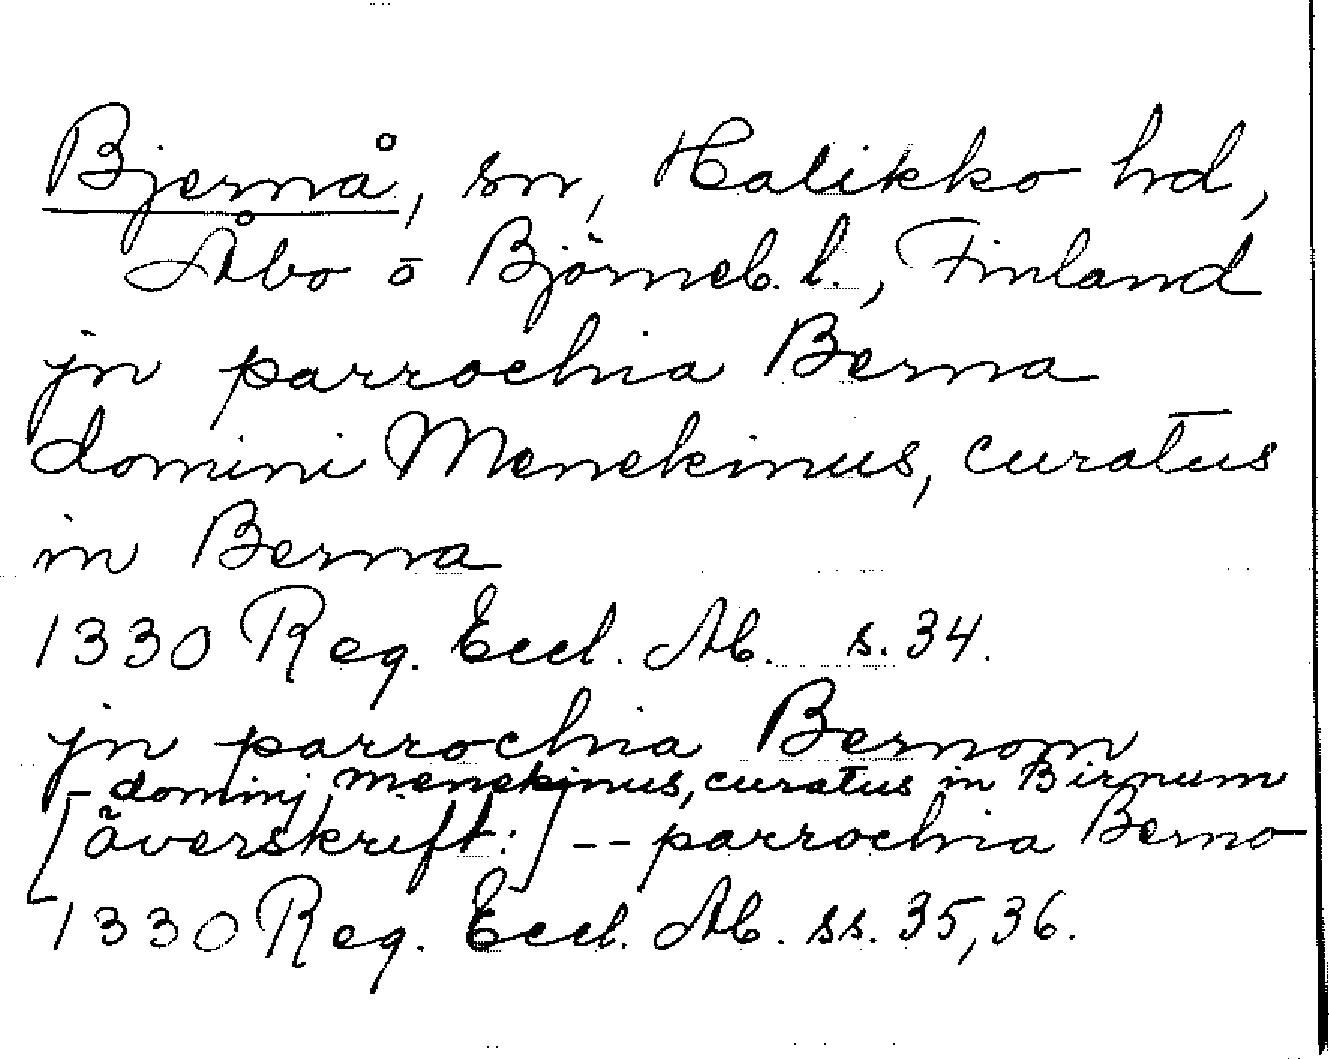 Bjernå, sn, Halikko hd,
Åbo o Björneb. l., Finland
jn parrochia Berna
domini Menekinus, curatus
in Berna
1330 Reg. Eccl. Ab. s. 34.
jn parrochia Bernom
- dominj menekinus, curatus in Birnum
[överskrift:] -- parrochia Berno
1330 Reg. Eccl. Ab. ss. 35, 36.